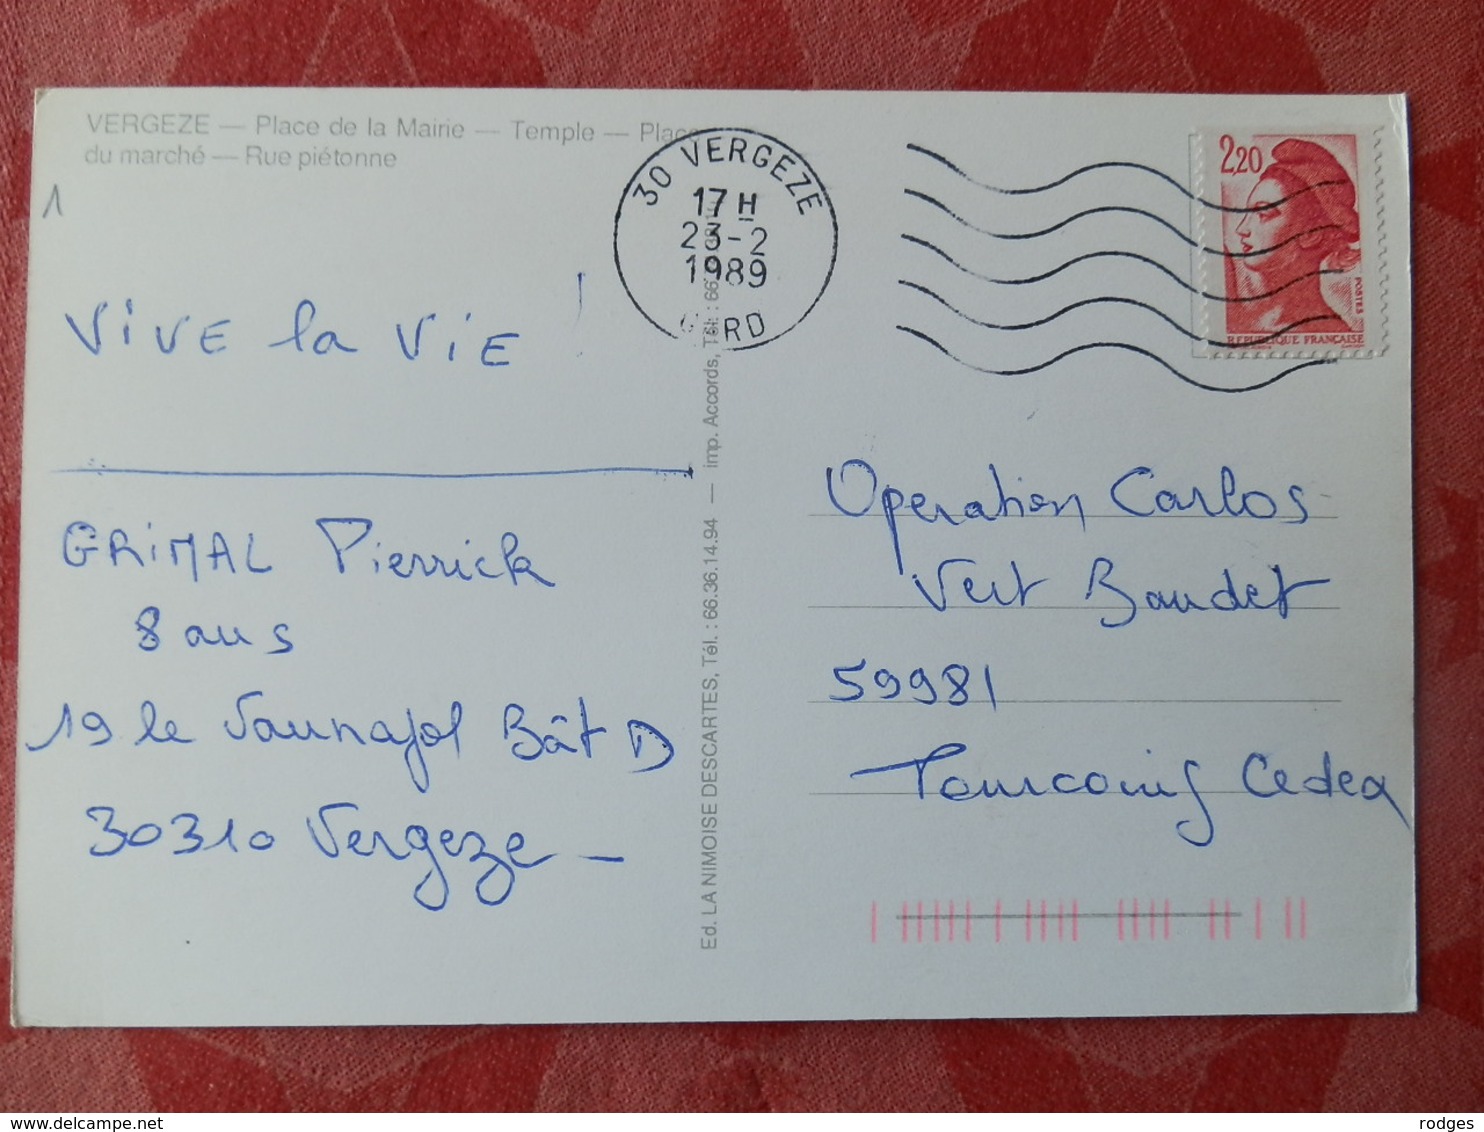 VERGEZE — Place de la Mairie — Temple — Place
du marché — Rue piétonne
1
VIVE la VIE !
GRIMAL Pierrick
8 ans
19 le Vaunajol Bât D
30310 Vergeze —
Ed. LA NIMOISE DESCARTES, Tél. : 66.36.14.94 — imp. Accords, Tél. : 66.
30 VERGEZE
17 H
23-2
1989
GARD
2,20
POSTES
REPUBLIQUE FRANÇAISE
Operation Carlos
Vert Baudet
59981
Tourcoing Cedex
rodges
delcampe.net